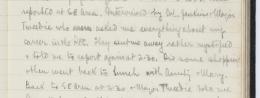 reported at S.E. area. Interviewed by Col. Jenkins & Major
Tweedie who asked me everything about my
career in the . They sent me away rather mystified
& told me to report again at 2.30. Did some shopping
then went back to lunch with Aunty & Mary.
Back to S.E. area at 2.30 & Major Tweedie told me